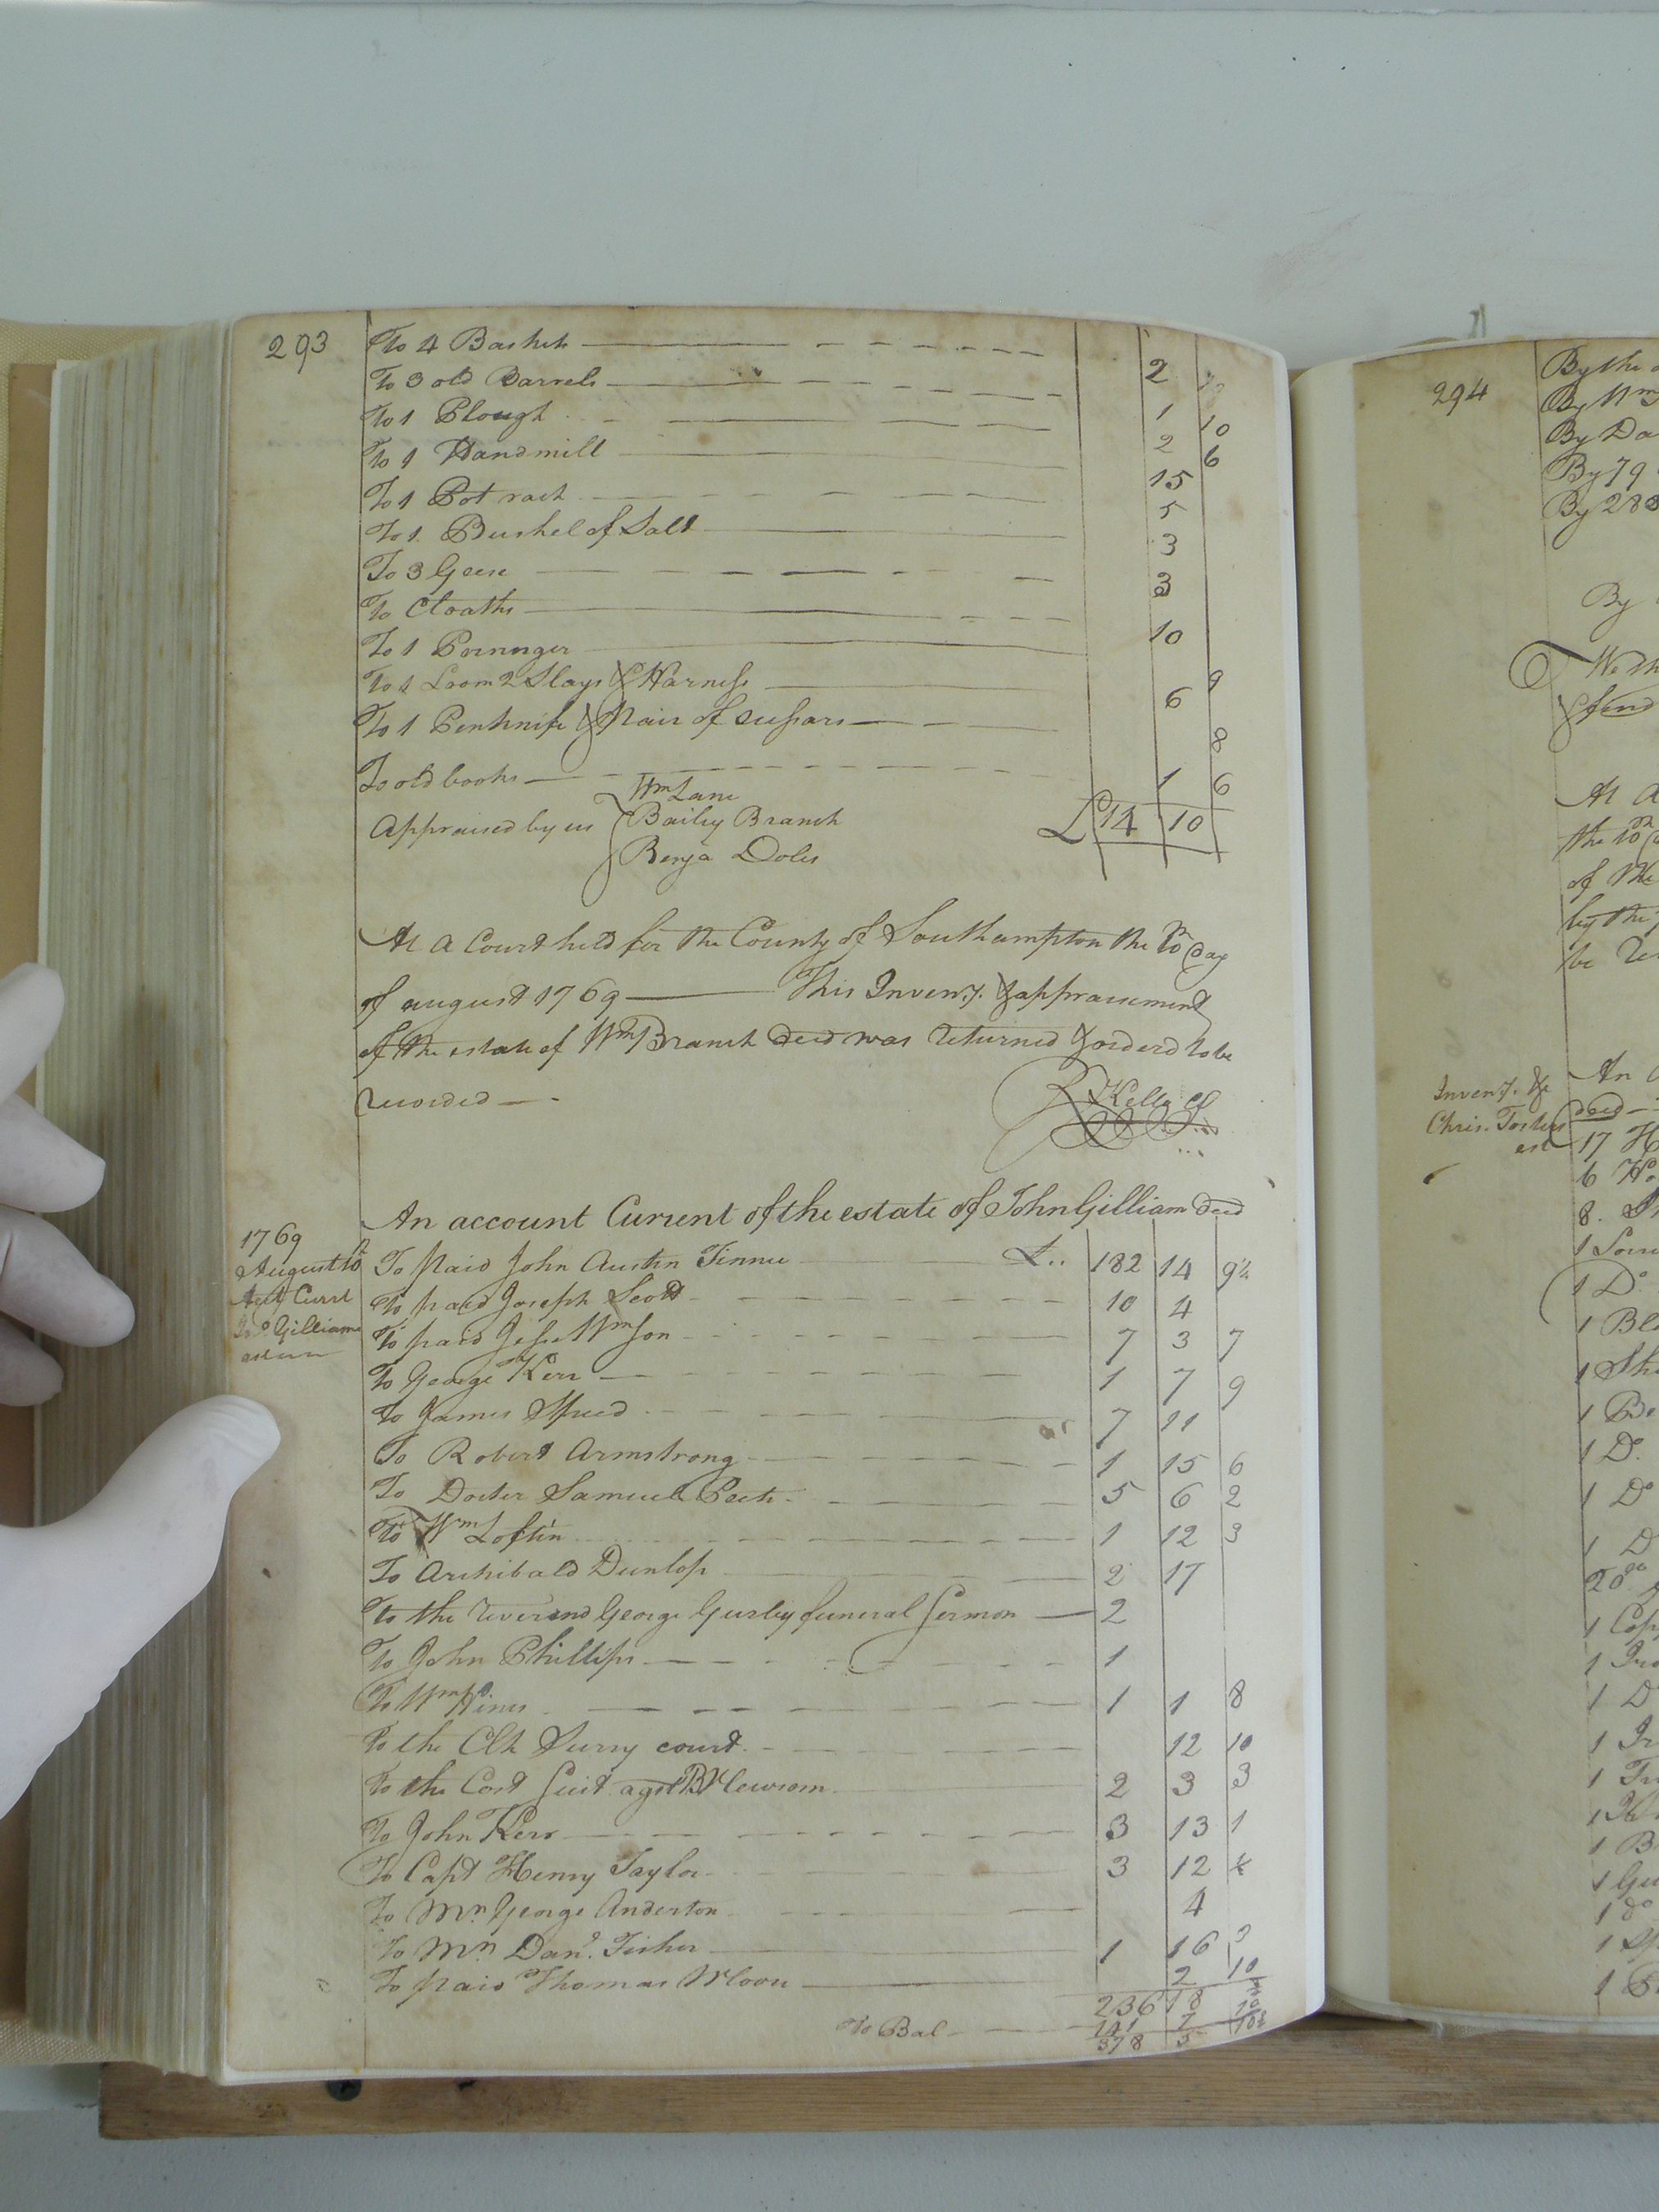 293
To 4 Baskets 2
To 3 old Barrels 1 10
To 1 Plough 2 6
To 1 Handmill 15
To 1 Pot rack 5
To 1 Bushel of Salt 3
To 3 Geese 3
To Cloaths 10
To 1 Porringer 9
To 1 Loom 2 Slays & Harness 6
To 1 Penknife & pair of scissars 8
To old books 1 6
Appraised by us Wm Lane
Bailey Branch £14 10
Benja Doles
At a Court held for the County of Southampton the 10th day
of august 1769 This Inventy. & appraisement
of the estate of Wm Branch decd was returned & orderd to be
recorded
Kello Cl
An account Current of the estate of John Gilliam decd
1769
August 10th
Acct Currt
Jno Gilliams
To paid John Austin Finnie £.. 182 14 9½
To paid Joseph Scott 10 4
To paid Jesse Wmson 7 3 7
To George Kerr 1 7 9
To James Speed 7 11
To Robert Armstrong 1 15 6
To Docter Samuel Peete 5 6 2
To Wm Loftin 1 12 3
To Archibald Dunlop 2 17
To the reverend George Gurley funeral Sermon 2
To John Phillips 1
To Wm Hines 1 1 8
To the Clk Surry court 12 10
To the Cost Suit agst B Newsom 2 3 3
To John Kerr 3 13 1
To Capt Henry Taylor 3 12
To Mr. George Anderton 4
To Mr Danl. Fisher 1 16 3
To paid Thomas Moore 2 10
236 18
To Bal 141 7
378 5 10½
294
By the
By Wm
By Da
By 79
By 288
By
We th
At a
the 10th
of the
by the
be re
Inventy. &c
Chris. Fosters
est
An
decd
17 H
6 Ho
8. Sh
1 D.
1 Bl
1 Sh
1 Be
1 D.
1 Do
1 D
1 D
1 B
1 Gu
1 do
1 Sp